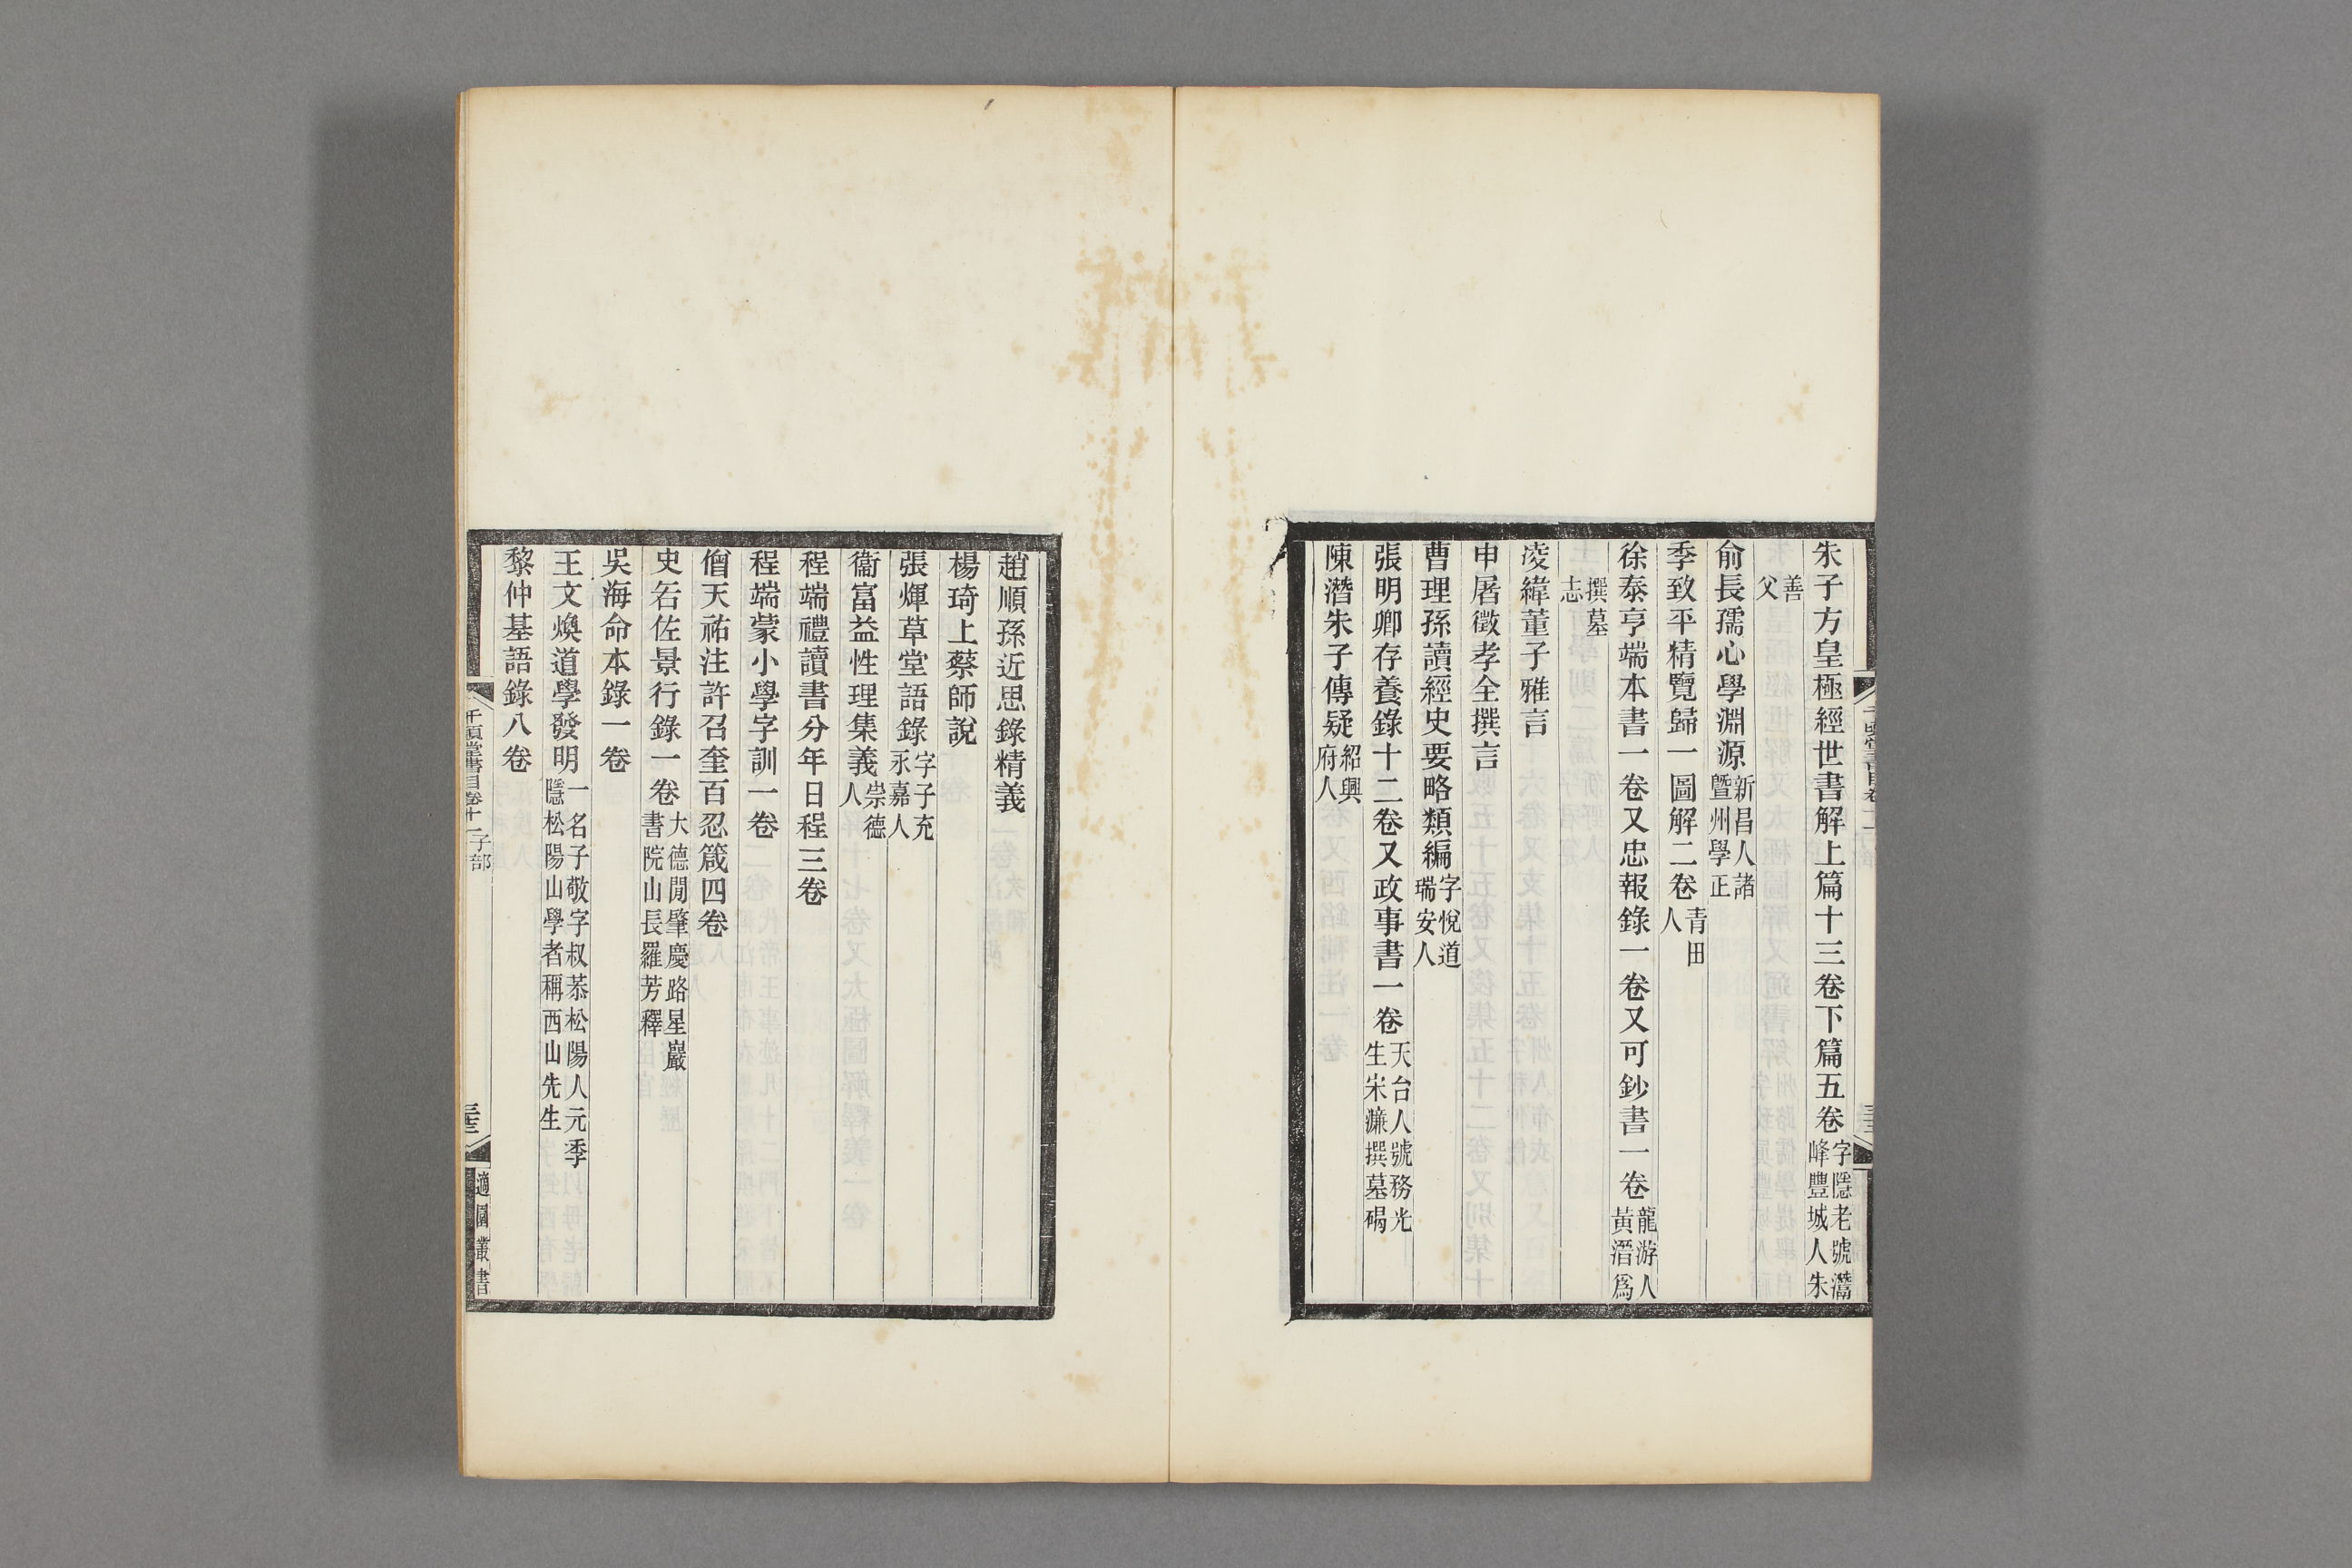 朱子方皇極經世書解上篇十三卷下篇五卷字隱老號灊峰豐城人朱
善父
俞長孺心學淵源新昌人諸暨州學正
季致平精覽歸一圖解二卷青田人
徐泰亨端本書一卷又忠報錄一卷又可鈔書一卷龍游人黃溍爲
撰墓志
凌緯董子雅言
申屠徵孝全撰言
曹理孫讀經史要略類編字悅道瑞安人
張明卿存養錄十二卷又政事書一卷天台人號務光生宋濂撰墓碣
陳潛朱子傳疑紹興府人
趙順孫近思錄精義
楊琦上蔡師說
張煇草堂語錄字子充永嘉人
衞富益性理集義崇德人
程端禮讀書分年日程三卷
程端蒙小學字訓一卷
僧天祐注許召奎百忍箴四卷
史若佐景行錄一卷大德閒肇慶路星巖書院山長羅芳釋
吳海命本錄一卷
王文煥道學發明一名子敬字叔恭松陽人元季隱松陽山學者稱西山先生
黎仲基語錄八卷
千頃堂書目卷十一子部
適園叢書